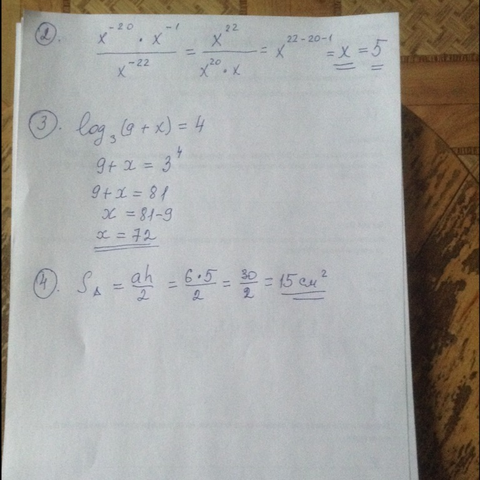 2. x^-20 · x^-1 / x^-22 = x^22 / x^20 · x = x^22-20-1 = x = 5
3. log_3 (9 + x) = 4
9 + x = 3^4
9 + x = 81
x = 81 - 9
x = 72
4. S_Δ = ah / 2 = 6 · 5 / 2 = 30 / 2 = 15 см^2